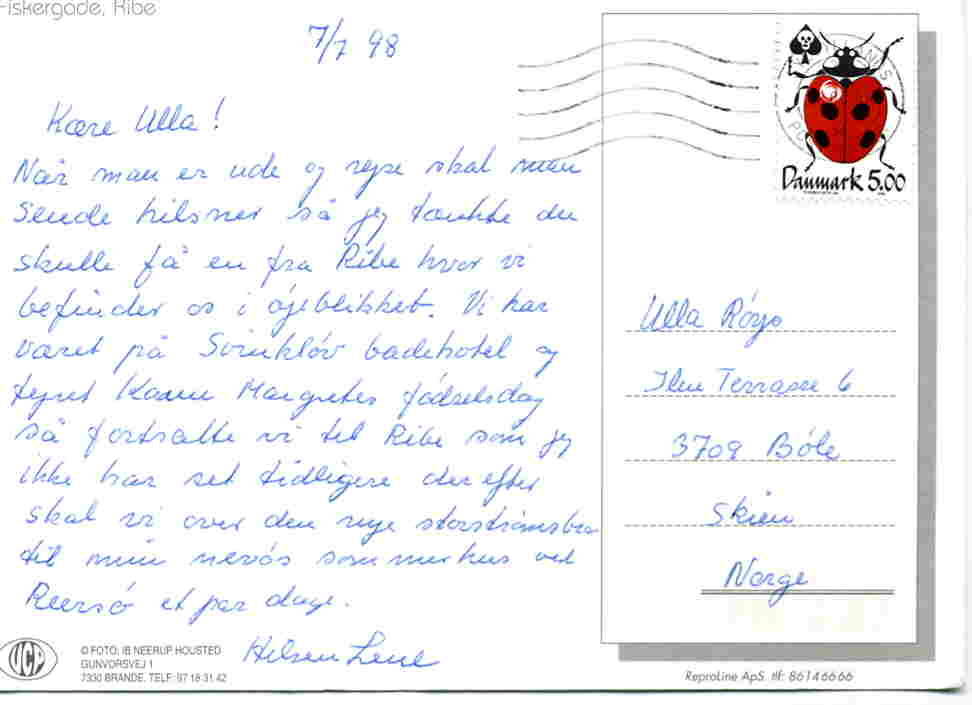 Fiskergade, Ribe
7/7 98
Kære Ulla!
Når man er ude og rejse skal man
sende hilsner så jeg tænkte du
skulle få en fra Ribe hvor vi
befinder os i øjeblikket. Vi har
været på Svinkløv badehotel og
fejret Karen Margretes fødselsdag
så fortsatte vi til Ribe som jeg
ikke har set tidligere derefter
skal vi over den nye storstrømsbro
til min nevøs sommerhus ved
Reersø et par dage.
Hilsen Lene
Danmark 5.00
Ulla
Ilen Terrasse 6
3709 Bøle
Skien
Norge
UCP
© FOTO: IB NEERUP HOUSTED
GUNVORSVEJ 1
7330 BRANDE. TELF: 97 18 31 42
ReproLine ApS. tlf: 86146666